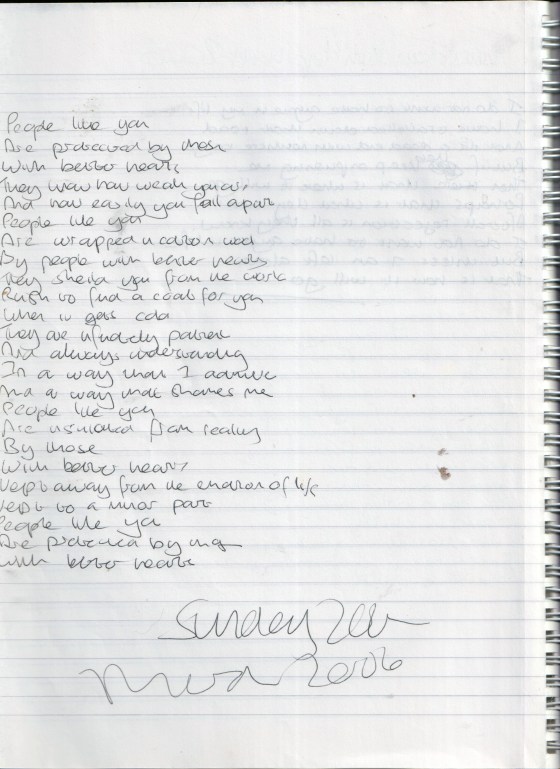 People like you
Are protected by those
With better hearts
They know how weak you are
And how easily you fall apart
People like you
Are wrapped in cotton wool
By people with better hearts
They shield you from the work
Rush to find a coat for you
When it gets cold
They are infinitely patient
And always understanding
In a way that I admire
And a way that shames me
People like you
Are insulated from reality
By those
With better hearts
Kept away from the emotion of life
Kept to a minor part
People like you
Are protected by
With better hearts
Sunday
2006